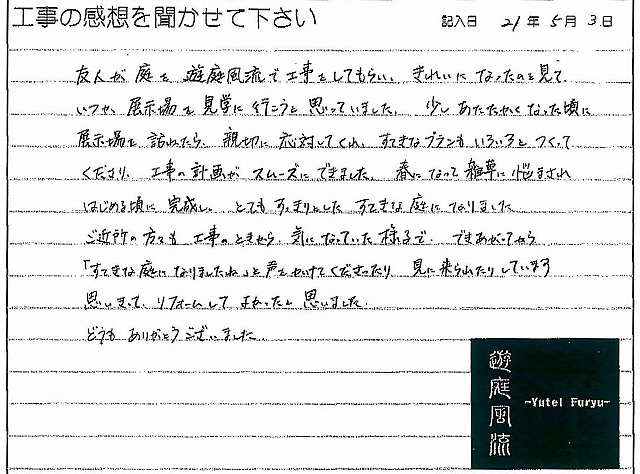 工事の感想を聞かせて下さい
記入日 21年5月3日
友人が庭を遊庭風流で工事をしてもらい、きれいになったのを見て、
いつか展示場を見学に行こうと思っていました。少しあたたかくなった頃に
展示場を訪れたら、親切に応対してくれ、すてきなプランもいろいろとつくって
くださり、工事の計画がスムーズにできました。春になって雑草に悩まされ
はじめる頃に完成し、とてもすっきりとしたすてきな庭になりました
ご近所の方も工事のときから気になっていた様子で、できあがってから
「すてきな庭になりましたね」と声をかけてくださったり、見に来られたりしています
思いきって、リフォームしてよかったと思いました。
どうもありがとうございました。
遊庭風流
~Yutei Furyu~